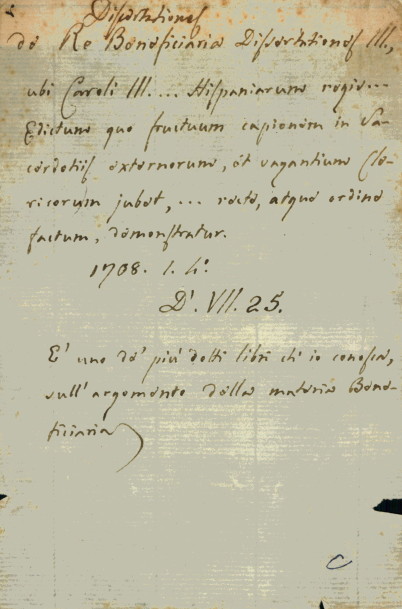 Dissertationes
de Re Beneficiaria Dissertationes III,
ubi Caroli III. ... Hispaniarum regis...
Edictum quo fructuum capionem in Sa-
cerdotiis externorum, et vagantium Cle-
ricorum jubet, ... recte, atque ordine
factum, demonstratur.
1708. I. 4°.
D'. VII. 25.
E' uno de' più dotti libri ch' io conosca,
sull' argomento della materia Bene-
ficiaria
C